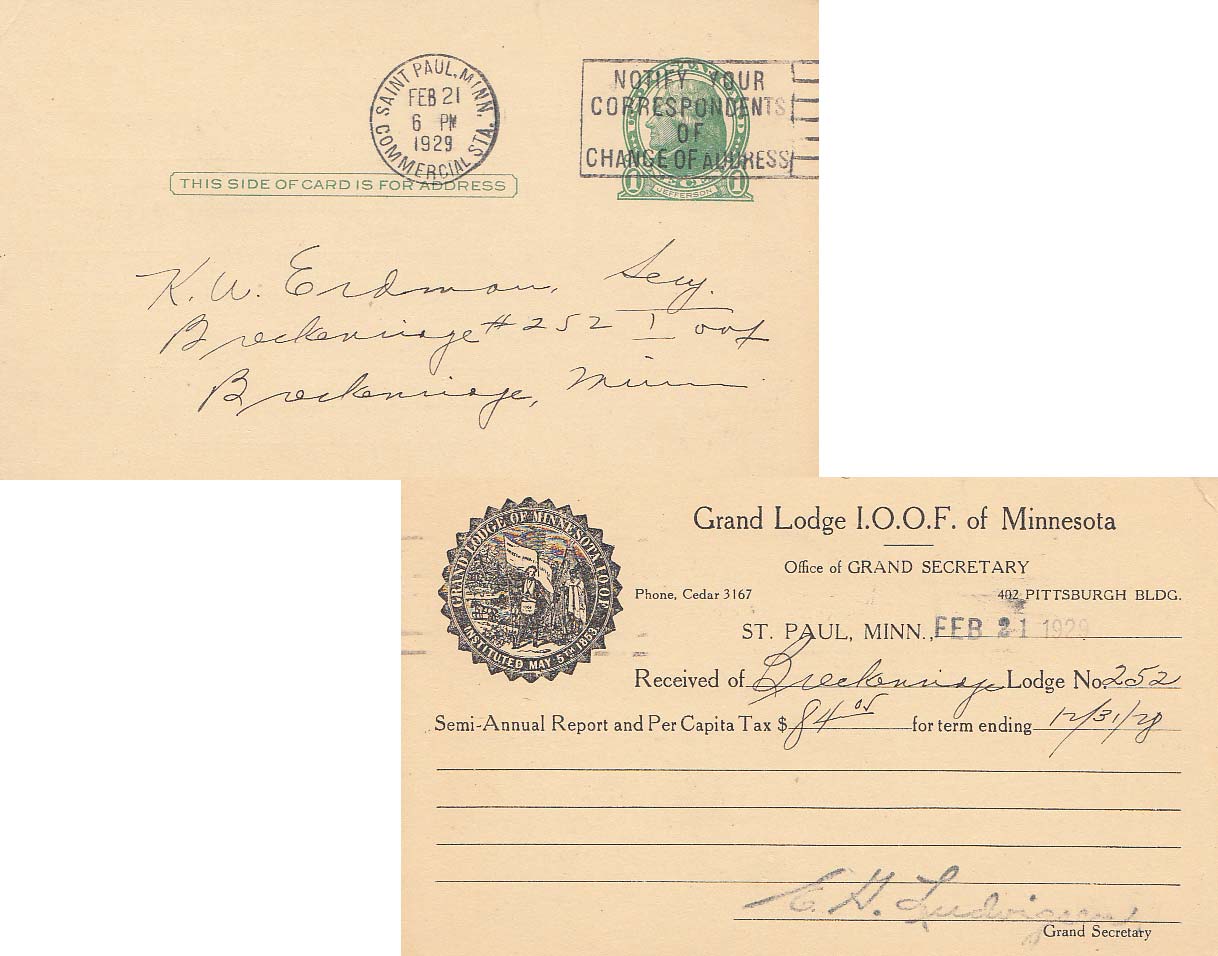 SAINT PAUL, MINN.
COMMERCIAL STA.
FEB 21
6 PM
1929
NOTIFY YOUR
CORRESPONDENTS
OF
CHANGE OF ADDRESS
1 JEFFERSON 1
THIS SIDE OF CARD IS FOR ADDRESS
K. W. Erdman, Secy.
Breckenridge # 252 I oof
Breckenridge, Minn
GRAND LODGE OF MINNESOTA I.O.O.F.
INSTITUTED MAY 5TH 1853
Grand Lodge I.O.O.F. of Minnesota
Office of GRAND SECRETARY
Phone, Cedar 3167 402 PITTSBURGH BLDG.
ST. PAUL, MINN., FEB 21 1929
Received of Breckenridge Lodge No. 252
Semi-Annual Report and Per Capita Tax $ 84 05 for term ending 12/31/28
E. H. Ludwigsen
Grand Secretary